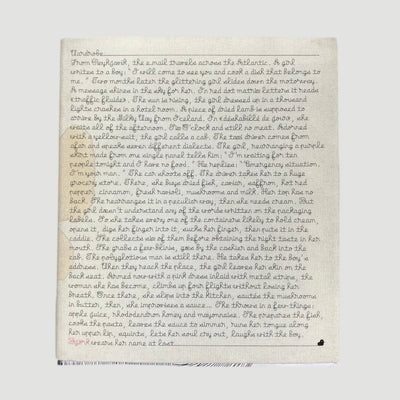 Wardrobe
From Reykjavik, the e.mail travels across the Atlantic. A girl
writes to a boy: "I will come to see you and cook a dish that belongs to
me." Two months later the glittering girl slides down the motorway.
A message shines in the sky for her. In red dot matrix letters it reads
: traffic fluides. The sun is rising, the girl dressed up in a thousand
lights crashes in a hotel room. A piece of dried lamb is supposed to
arrive by the Milky Way from Iceland. In déshabillé de gowo, she
waits all of the afternoon. Six O'clock and still no meat. Adorned
with a yellow suit, the girl calls a cab. The taxi driver comes from
afar and speaks seven different dialects. The girl, wearing a purple
skirt made from one single panel tells him: "I'm waiting for ten
people tonight and I have no food." He replies: "Emergency situation.
I'm your man." The car shoots off. The driver takes her to a huge
grocery store. There, she buys dried fish, caviar, saffron, hot red
pepper, cinnamon, fresh ravioli, mushrooms and milk. Her top has no
back. She rearranges it in a peculiar way, then she needs cream. But
the girl doesn't understand any of the words written on the packaging
labels. So she takes every one of the containers likely to hold cream
opens it, dips her finger into it, sucks her finger, then puts it in the
caddie. She collects six of them before obtaining the right taste in her
mouth. She grabs a few blinis, goes by the cashier and back into the
cab. The polyglotious man is still there. He takes her to the boy's
address. When they reach the place, the girl leaves her skin on the
back seat. Armed now with a pink dress inlaid with metal strips, the
woman she has become, climbs up four flights without losing her
breath. Once there, she slips into the kitchen, sautés the mushrooms
in butter, then, she improvises a sauce... She throws in a few things:
apple juice, rhododendron honey and mayonnaise. She prepares the fish,
cooks the pasta, leaves the sauce to simmer, runs her tongue along
her upper lip, squints, lets her soul cry out, laughs with the boy.
Björk wears her name at last